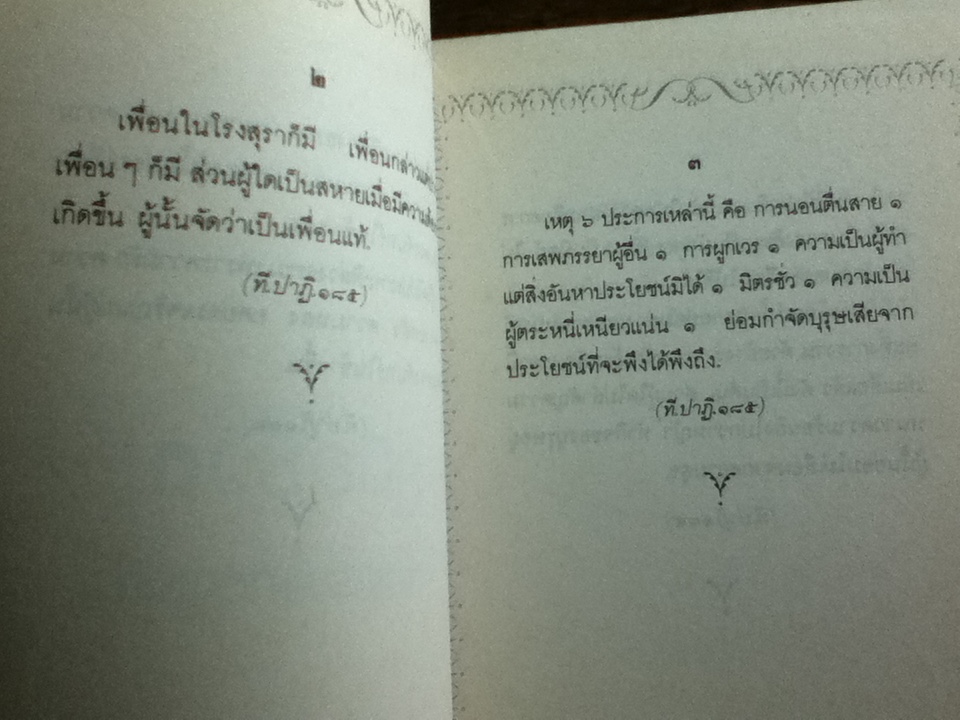 ๒
เพื่อนในโรงสุราก็มี เพื่อนกล่าวแต่
เพื่อน ๆ ก็มี ส่วนผู้ใดเป็นสหายเมื่อมีความ
เกิดขึ้น ผู้นั้นจัดว่าเป็นเพื่อนแท้.
(ที.ปาฏิ.๑๘๕)
๓
เหตุ ๖ ประการเหล่านี้ คือ การนอนตื่นสาย ๑
การเสพภรรยาผู้อื่น ๑ การผูกเวร ๑ ความเป็นผู้ทำ
แต่สิ่งอันหาประโยชน์มิได้ ๑ มิตรชั่ว ๑ ความเป็น
ผู้ตระหนี่เหนียวแน่น ๑ ย่อมกำจัดบุรุษเสียจาก
ประโยชน์ที่จะพึงได้พึงถึง.
(ที.ปาฏิ.๑๘๕)